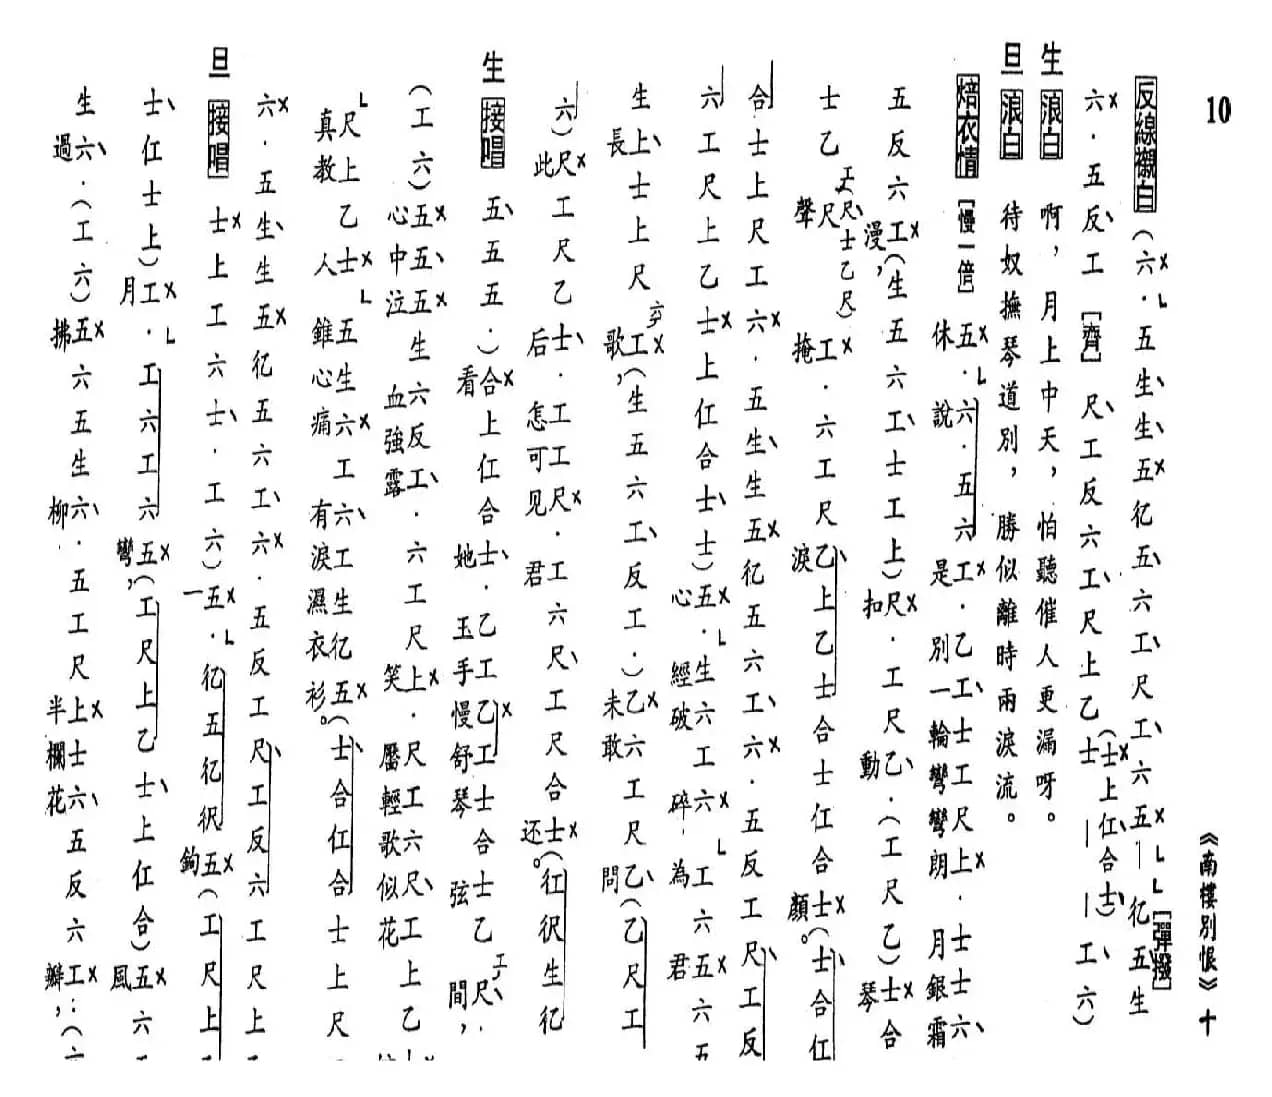 10
《南樓別恨》十
反線襯白(六.五生生五亿五六工尺工六五—亿五生[彈撥]
六.五反工[齊]尺工反六工尺上乙士(士上仜合士)——工六)
生 浪白 啊,月上中天,怕聽催人更漏呀。
旦 浪白 待奴撫琴道別,勝似離時兩淚流。
焙衣情[慢一倍]五.六.五六工.乙工士工尺上.士士六
休說是別一輪彎彎朗月銀霜
五反六工(生五六工士工上)尺.工尺乙.(工尺乙)士合
漫,扣動琴
士乙尺(尺士乙尺)工.六工尺乙上乙士合士仜合士(士合仜
聲掩淚顏。
合士上尺工六.五生生五亿五六工六.五反工尺工反
六工尺上乙士上仜合士士)五.生六工六工六五六五
心經破碎為君
生上士上尺工(生五六工反工.)乙六工尺乙(乙尺工
長歌,未敢問
六)尺工尺乙士.工工尺.工六尺工尺合士(仜伬生亿
此后怎可見君还。
生 接唱 五五五.)合上仜合士.乙工乙工士合士乙尺.
看她玉手慢舒琴弦間,
(工六)五五五生六反工.六工尺上.尺工六尺工上乙
心中泣血強露笑靨輕歌似花
尺上乙士五生六工六工生亿五(士合仜合士上尺
真教人錐心痛有淚濕衣衫。
六.五生生五亿五六工六.五反工尺工反六工尺上
旦 接唱 士上工六士.工六)五.亿五亿伬五(工尺上
一鉤
士仜士上)工.工六工六五(工尺上乙士上仜合)五六
月彎,風
生六.(工六)五六五生六.五工尺上士六五反六工:(
過拂柳半欄花瓣,